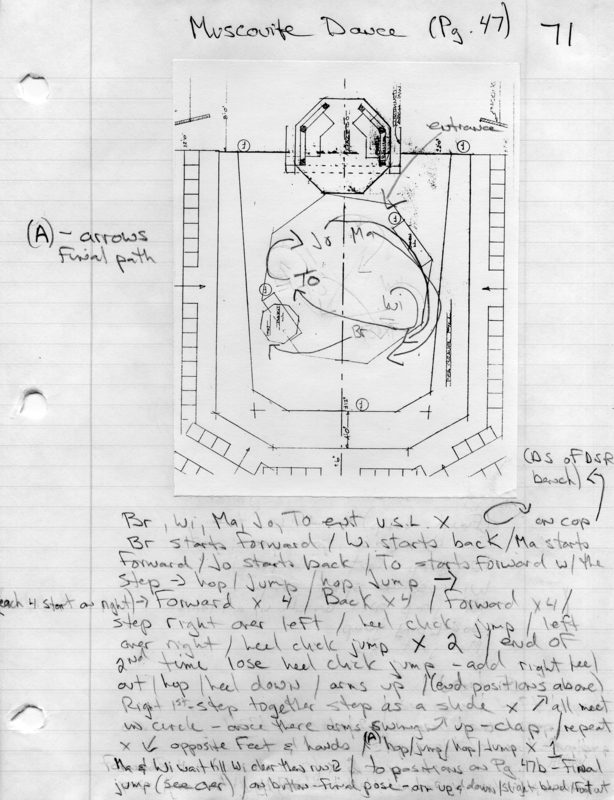 Muscovite Dance (Pg. 47) 71
entrance
(A) - arrows
Final path
Jo Ma
To
Wi
Br
(DS of DSR
bench)
Br, Wi, Ma, Jo, To ent U.S.L. X on cop
Br starts forward / Wi starts back / Ma starts
Forward / Jo starts back / To starts forward w/ the
step → hop / jump / hop jump →
(each 4 start on right) → Forward x 4 / Back x 4 / Forward x 4 /
step right over left / heel click jump / left
over right / heel click jump x 2 / end of
2nd time lose heel click jump - add right heel
out / hop / heel down / arms up / (end positions above)
Right 1st - step together step as a slide x ↗ all meet
in circle - once there arms swing up - clap / repeat
x ↙ opposite feet & hands / (A) hop / jump / hop / jump x 1
Ma & Wi wait till Wi clear then run / to positions on Pg 47b - Final
jump (see over) / on button - final pose - arm up & down /